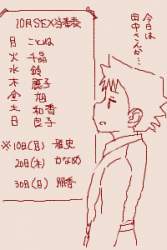 10月SEX当番表
月 ことね
火 千晶
水 鈴
木 麗子
金 旭
土 和香
日 良子
※10日(月) 雅史
20日(木) かなめ
30日(日) 朋香
今日は
田中さんか…